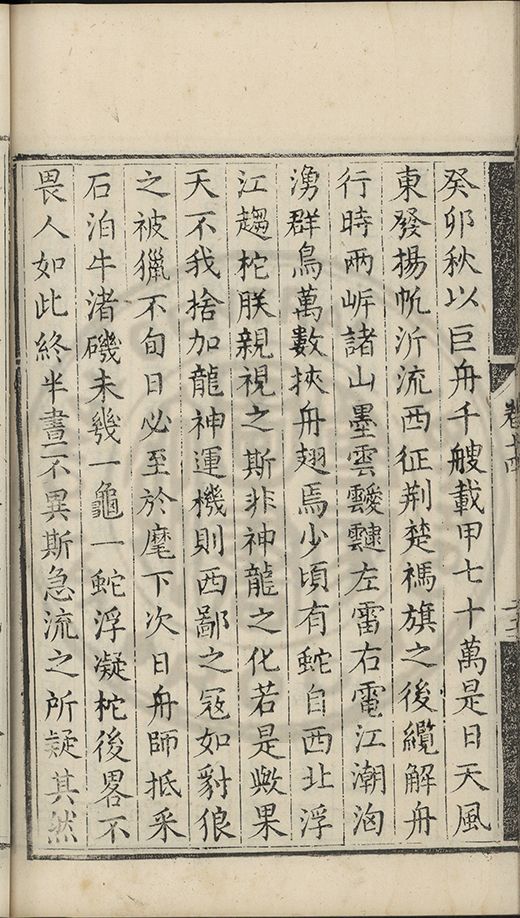 癸卯秋以巨舟千艘載甲七十萬是日天風
東發揚帆泝流西征荆楚禡旗之後纜解舟
行時兩岸諸山墨雲靉靆左雷右電江潮洶
湧群鳥萬數挾舟翅焉少頃有蛇自西北浮
江趨柁朕親視之斯非神龍之化若是歟果
天不我捨加龍神運機則西鄙之冦如豺狼
之被獵不旬日必至於麾下次日舟師抵采
石泊牛渚磯未幾一龜一蛇浮凝柁後畧不
畏人如此終半晝不異斯急流之所疑其然
卷十四